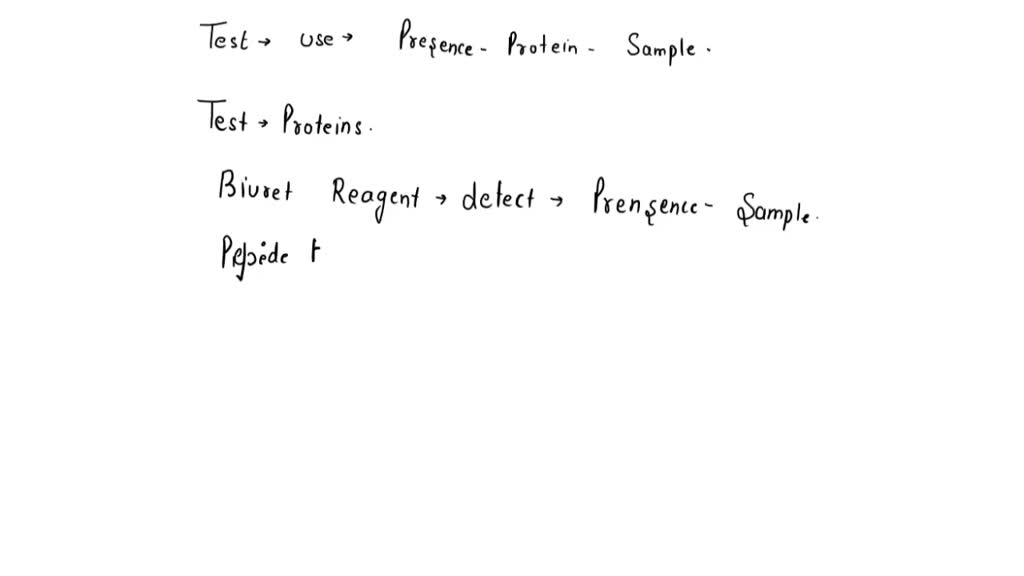 Test → use → Presence - Protein - Sample.
Test → Proteins.
Biuret Reagent → detect → Prensence - Sample.